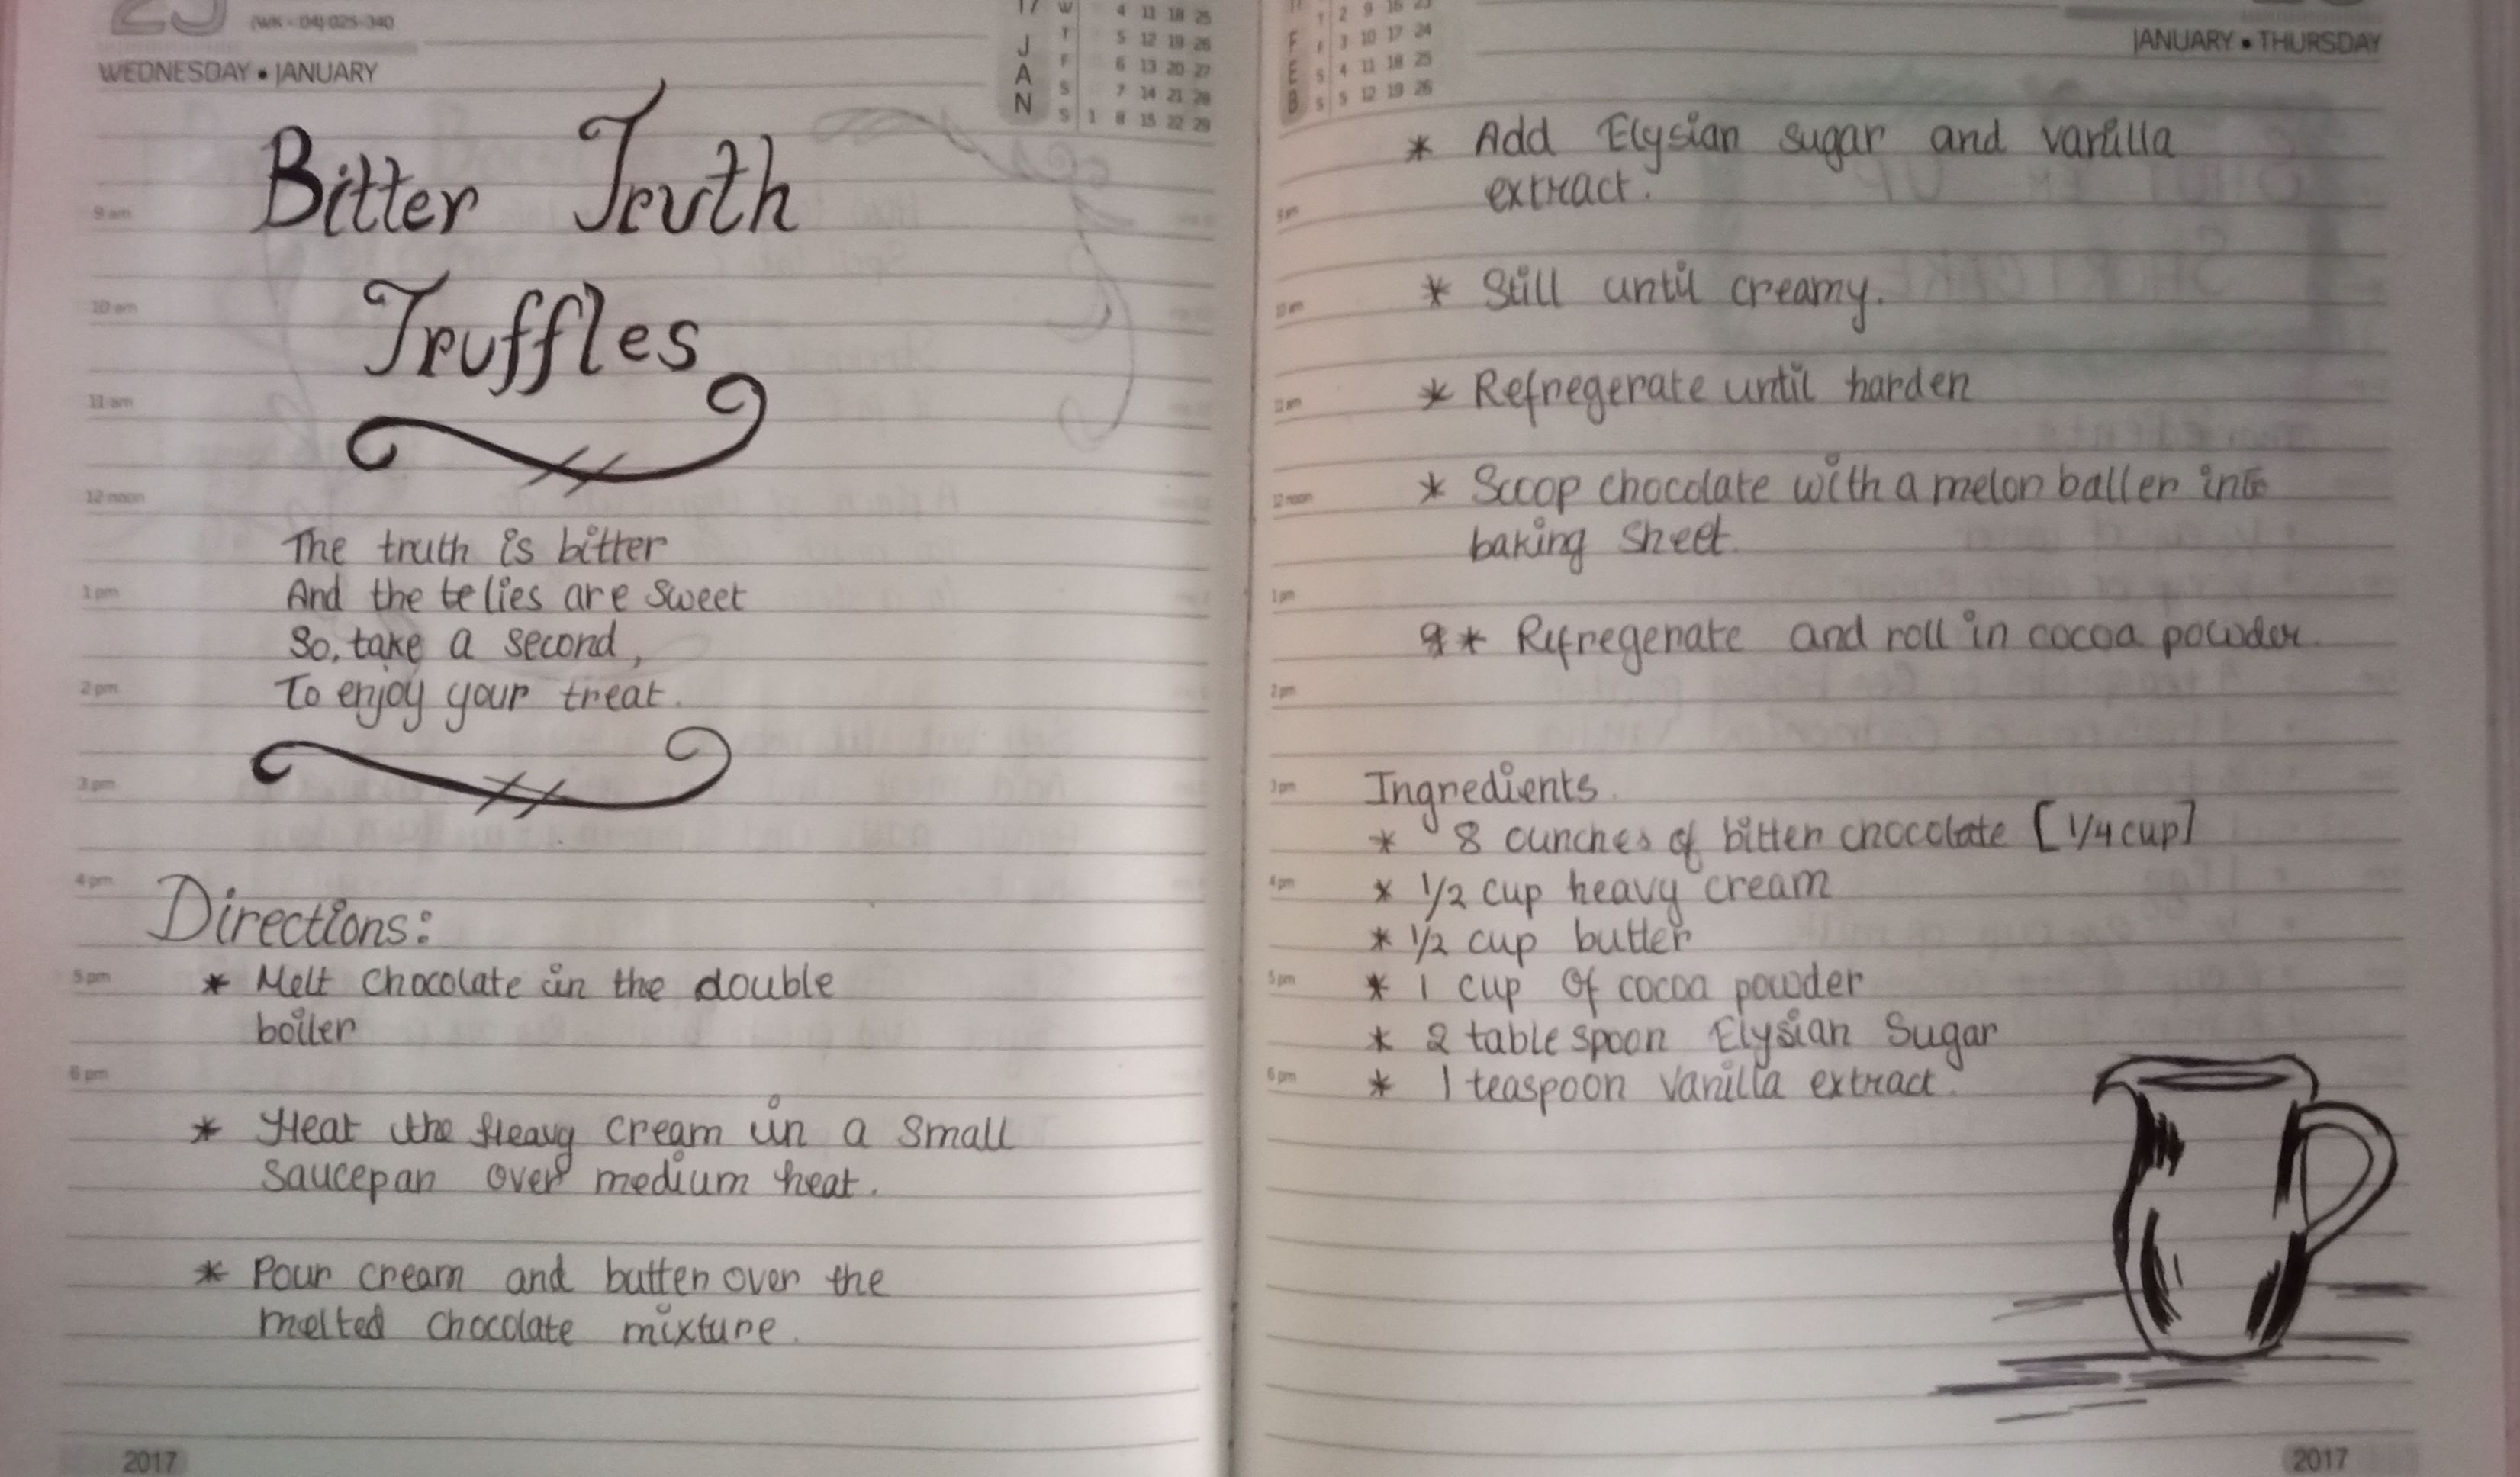 25 (WK - 04) 025-340
WEDNESDAY • JANUARY
17 W 4 11 18 25
J T 5 12 19 26
A F 6 13 20 27
N S 7 14 21 28
S 1 8 15 22 29
Bitter Truth
Truffles
The truth is bitter
And the te lies are sweet
So, take a second,
To enjoy your treat.
Directions:
* Melt chocolate in the double
boiler
* Heat the Heavy cream in a small
saucepan over medium heat.
* Pour cream and butter over the
melted chocolate mixture.
9 am
10 am
11 am
12 noon
1 pm
2 pm
3 pm
4 pm
5 pm
6 pm
2017
T 2 9 16 23
F F 3 10 17 24
E S 4 11 18 25
B S 5 12 19 26
JANUARY • THURSDAY
* Add Elysian sugar and vanilla
extract.
* Still until creamy.
* Refregerate until harden
* Scoop chocolate with a melon baller into
baking sheet.
* Refregerate and roll in cocoa powder.
Ingredients.
* 8 ounches of bitter chocolate [1/4 cup]
* 1/2 cup heavy cream
* 1/2 cup butter
* 1 cup of cocoa powder
* 2 table spoon Elysian Sugar
* 1 teaspoon vanilla extract.
9 am
10 am
11 am
12 noon
1 pm
2 pm
3 pm
4 pm
5 pm
6 pm
2017